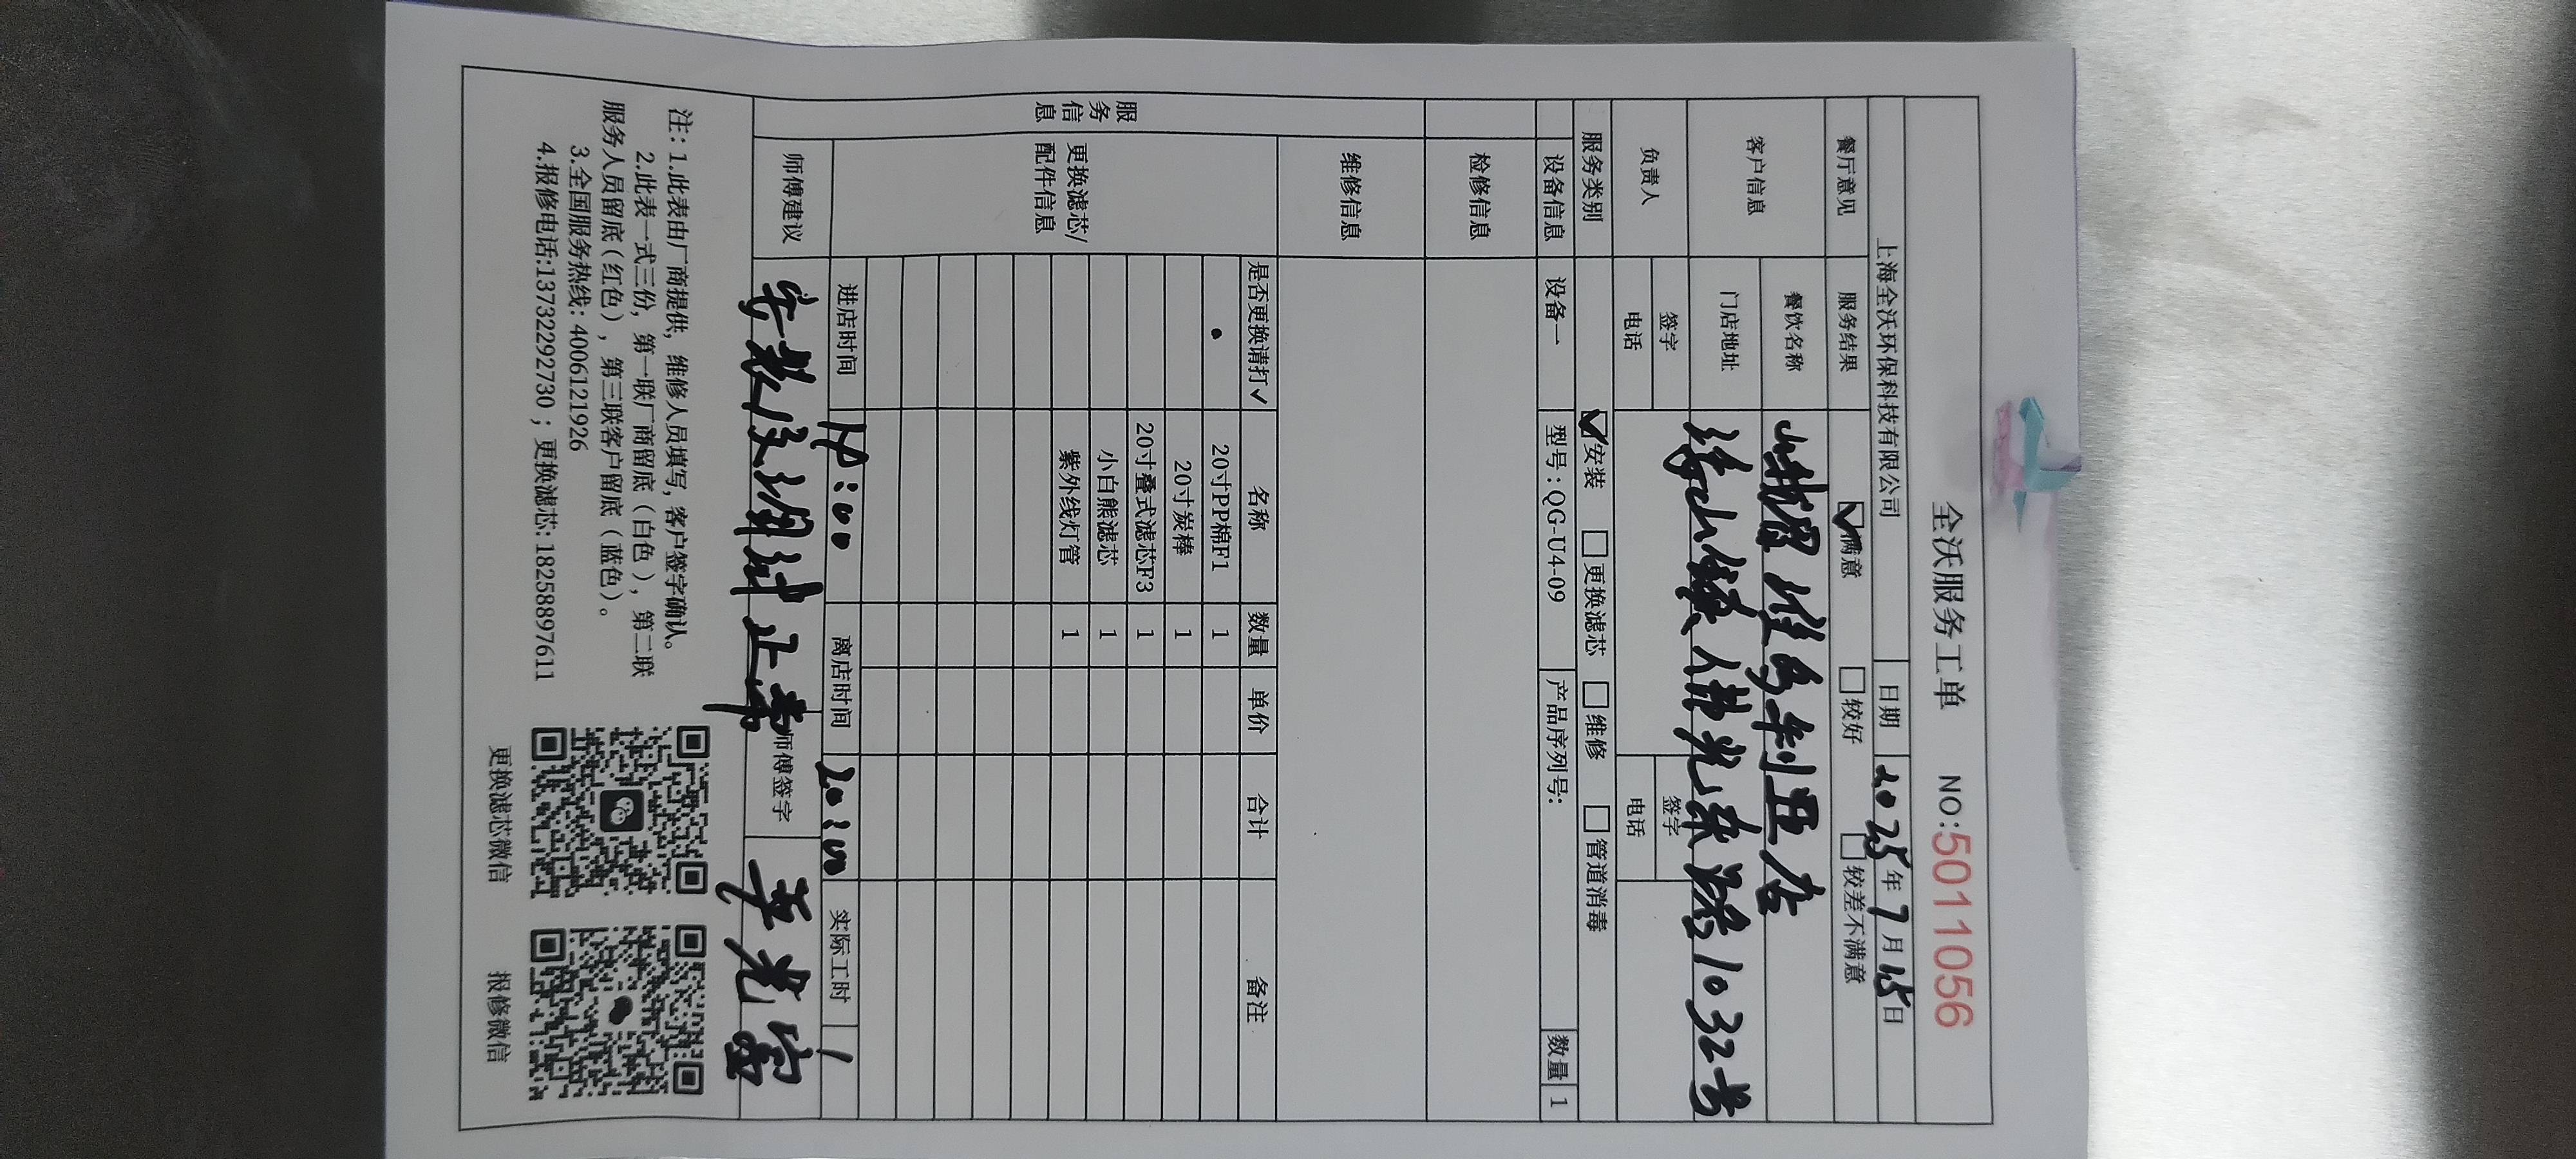 全沃服务工单 NO:5011056
上海全沃环保科技有限公司 日期 2025年7月25日
餐厅意见 服务结果 满意 较好 较差不满意
客户信息 餐饮名称 峨眉维多利亚店
门店地址 绥山镇佛光东路1032号
负责人 签字 签字
电话 电话
服务类别 安装 更换滤芯 维修 管道消毒
设备信息 设备一 型号:QG-U4-09 产品序列号: 数量 1
检修信息
维修信息
服务信息
更换滤芯/配件信息
是否更换请打✓ 名称 数量 单价 合计 备注
20寸PP棉F1 1
20寸炭棒 1
20寸叠式滤芯F3 1
小白熊滤芯 1
紫外线灯管 1
进店时间 离店时间 实际工时 1
师傅建议 安装后调试正常 师傅签字
注:1.此表由厂商提供,维修人员填写,客户签字确认。
2.此表一式三份,第一联厂商留底(白色),第二联
服务人员留底(红色),第三联客户留底(蓝色)。
3.全国服务热线:4006121926
4.报修电话:13732292730;更换滤芯:18258897611
更换滤芯微信 报修微信